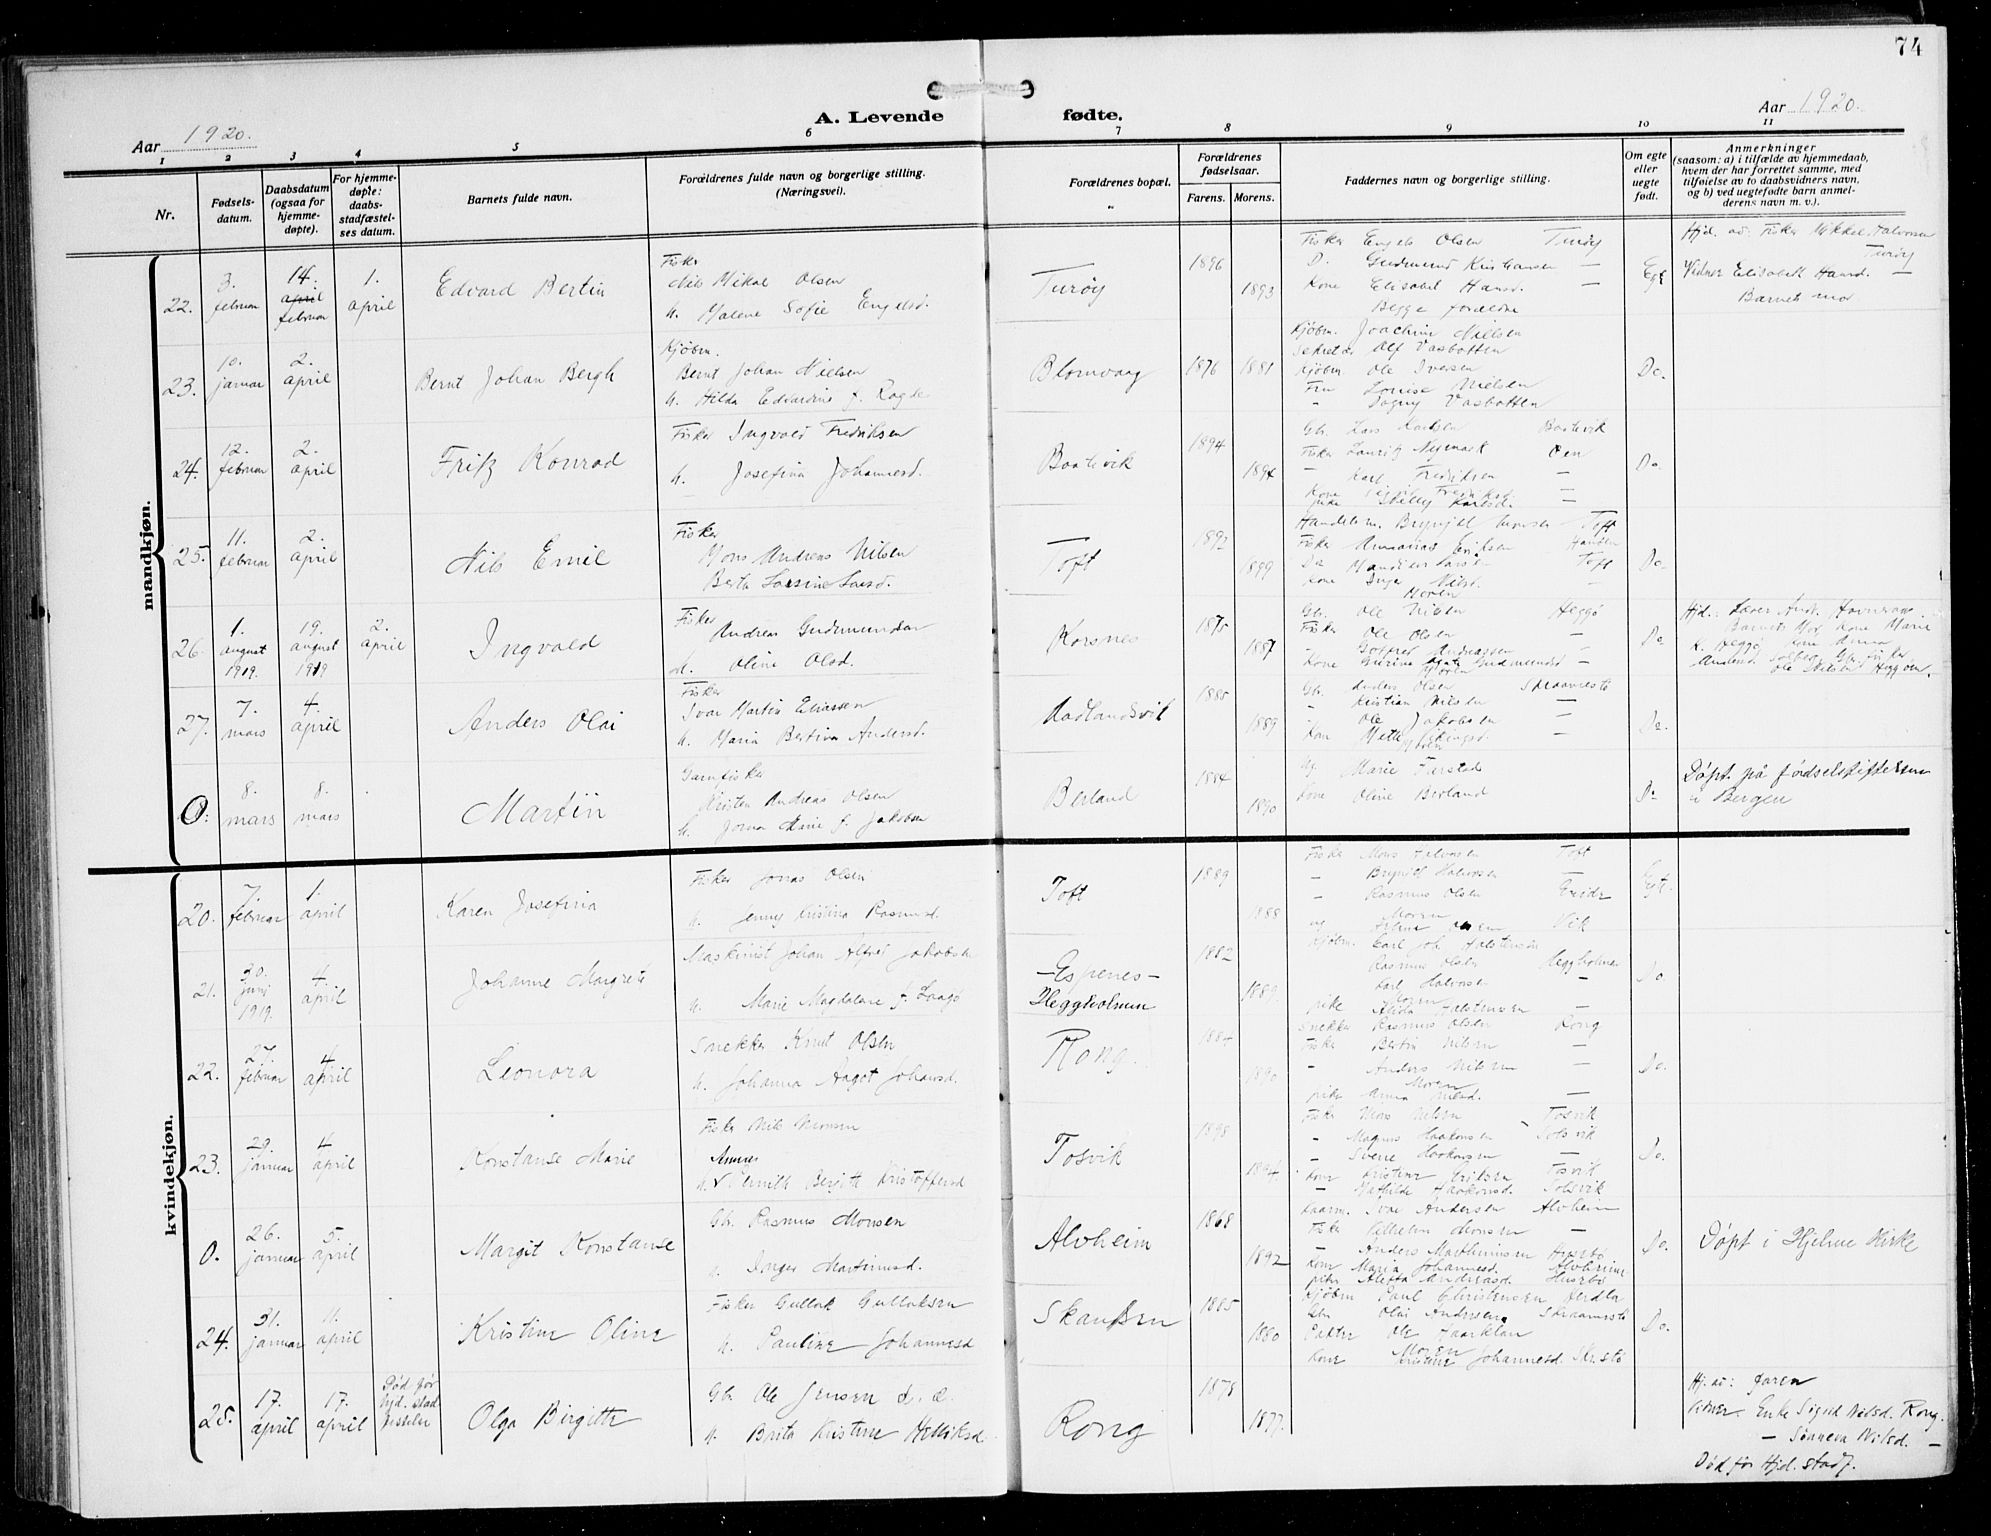 74
Aar 1920.
A. Levende fødte.
Aar 1920.
1 2 3 4 5 6 7 8 9 10 11
Nr.
Fødsels-
datum.
Daabsdatum
(ogsaa for
hjemme-
døpte).
For hjemme-
døpte:
daabs-
stadfæstel-
ses datum.
Barnets fulde navn.
Forældrenes fulde navn og borgerlige stilling.
(Næringsvei).
Forældrenes bopæl.
Forældrenes
fødselsaar.
Farens. Morens.
Faddernes navn og borgerlige stilling.
Om egte
eller
uegte
født.
Anmerkninger
(saasom: a) i tilfælde av hjemmedaab,
hvem der har forrettet samme, med
tilføielse av to daabsvidners navn,
og b) ved uegtefødte barn anmel-
derens navn m. v.).
mandkjøn.
22.
3.
februar
14.
april
februar
1.
april
Edvard Bertin
Fisker
Nils Mikal Olsen
h. Malene Sofie Engelsd.
Turøy
1896
1893
Fisker Engels Olsen Turøy
D. Gudmund Kristiansen —
Kone Elisabet Hansd. —
Begge forældre
Egt
Hjd. av: Fisker Mikkel Halvorsen
Turøy
Vidner Elisabeth Hansd. —
Barnets mor
23.
10.
januar
2.
april
Bernt Johan Bergh
Kjøbm.
Bernt Johan Nielsen
h. Hilda Edvardine f. Ragde
Blomvaag
1876 1881
Kjøbm. Joachim Nielsen
Sekretær Alf Vasbotten
Kjøbm Ole Iversen
Fru Louise Nielsen
" Dagny Vasbotten
Do.
24.
12.
februar
2.
april
Fritz Konrad
Fisker Ingvald Fredriksen
h. Josefina Johannesd.
Baatevik
1894
1894
Gbr. Lars Larsen Baatevik
Fisker Lauritz Nymark Øen
— Karl Fredriksen —
Do.
25.
11.
februar
2.
april
Nils Emil
Fisker
Mons Andreas Nilsen
Berta Larsine Larsd.
Toft
1892
1899
Handelsm. Brynjel Monsen Toft
Fisker Ananias Eriksen
Do Larsen Toft
Kone Inga Nilsd. —
Moren
Do.
26.
1.
august
1919.
19.
august
1919
2.
april
Ingvald
Fisker
Andreas Gudmundsen
h. Oline Olsd.
Korsnes
1875
1887
Gbr. Ole Nilsen Heggø
Fisker Ole Olsen —
" Gotfred Andreassen
Kone Gurine Gudmundsd —
Moren
Do
Hjd.: Lærer Andr.
Barnets Mor, Kone Marie
27.
7.
mars
4.
april
Anders Olai
Fisker
Ivar Martin Eliassen
h. Maria Bertina Andersd.
Aadlandsvik
1885
1889
Gbr. Anders Olsen
" Kristian Nilsen —
" Ole Jakobsen —
Kone Mette Vikingsd. —
Moren
Do.
0.
8.
mars
8.
mars
Martin
Garnfisker
Kristen Andreas Olsen
h. Jorna Marie f. Jakobsen
Berland
1884
1890
ug. Marie Turstad
Kone Oline Berland
Do
Døpt på fødselstiftelsen
i Bergen
kvindekjøn.
20.
7.
februar
1.
april
Karen Josefina
Fisker Jonas Olsen
h. Jenny Kristina Rasmusd.
Toft
1889
1888
Fisker Mons Halvorsen Toft
— Brynjel Halvorsen
— Rasmus Olsen
Moren
Vik
Egt.
21.
30.
juni
1919.
4.
april
Johanne Margrete
Maskinist Johan Alfred Jakobsen
h. Marie Magdalene f. Laagø
— Espenes —
Heggholmen
1882
1889
Kjøbm. Carl Joh. Halstensen
Rasmus Olsen Heggholmen
Karl Halvorsen
Moren
pike Alida Halstensen —
Do.
22.
27.
februar
4
april
Leonora
Snekker Knut Olsen
h. Johanna Aagot Johansd.
Rong.
1884
1890
Snekker Rasmus Olsen Rong
Fisker Bertin Nilsen —
" Anders Nilsen —
Moren
pike Anna Nilsd. —
Do.
23.
29.
januar
4
april
Konstanse Marie
Fisker Nils Monsen
h. Pernille Birgitte Kristoffersd
Tosvik
1898
1894
Fisker Mons Nilsen Tosvik
" Magnus Haakonsen
" Sverre Haakonsen
Kone Kristine Eriksen Tosvik
— Mathilde Haakonsd.
Do.
0.
26.
januar
5.
april
Margit Konstanse
Gbr. Rasmus Monsen
h. Inger Martinusd.
Alvheim
1868
1892
Ivar Andersen Alvheim
Fisker Vilhelm Monsen —
— Anders Marthinusen Husebø
Kone Maria Johannesd. Alvheim
pike Aletta Andreasd. Husebø
Do.
Døpt i Hjelme Kirke
24.
31.
januar
11.
april
Kristine Oline
Fisker Gullak Gullaksen
h. Pauline Johannesd
Skansen
1885
1880
Kjøbm Paul Christensen Herdla
Gbr. Olai Andersen
Ole Haarklau
Moren
Kone Kristine Johannesd. Skr.stø
Do.
25.
17.
april
17.
april
Død før
hjd. stad
festelse
Olga Birgitte
Gbr. Ole Jensen d. æ.
h. Brita Kristine Helliksd.
Rong
1878
1877.
Hj. av: faren
Vidner: Enke Sigrid Nilsd. Rong.
— Sønneva Nilsd. —
Død før Hjd. stadf.